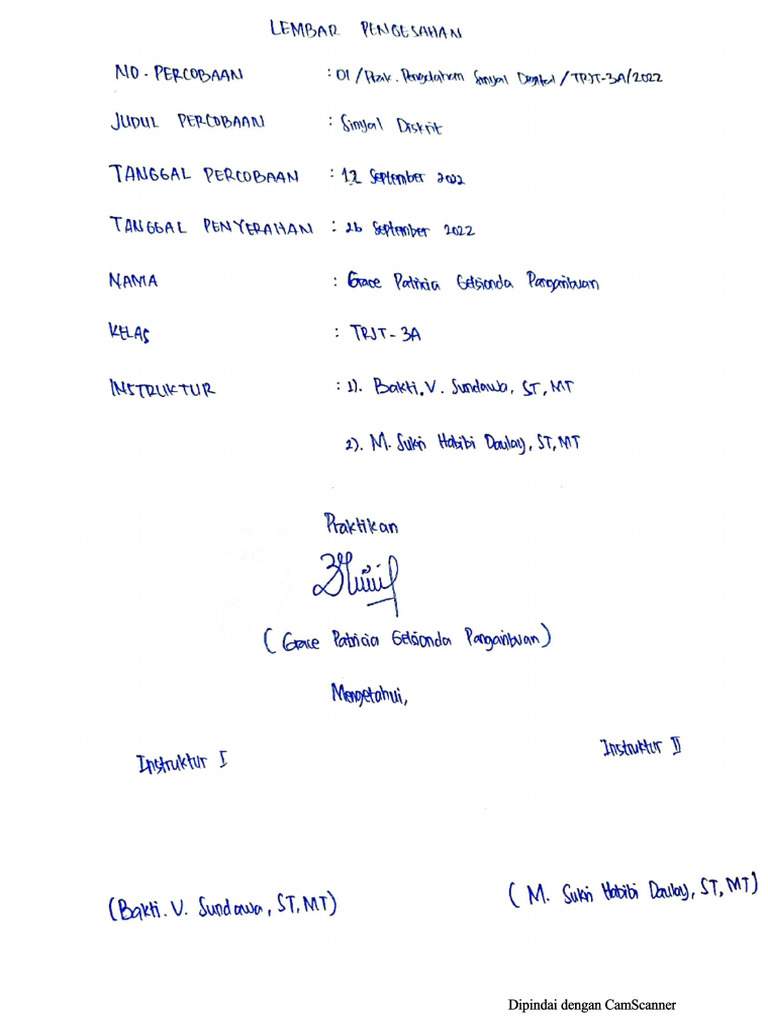 LEMBAR PENGESAHAN
NO. PERCOBAAN : 01/Prak. Pengolahan Sinyal Degital/TRJT-3A/2022
JUDUL PERCOBAAN : Sinyal Diskrit
TANGGAL PERCOBAAN : 12 September 2022
TANGGAL PENYERAHAN : 26 September 2022
NAMA : Grace Patricia Gelsionda Pangaribuan
KELAS : TRJT-3A
INSTRUKTUR : 1). Bakti. V. Sundawa, ST, MT
2). M. Sukri Habibi Daulay, ST, MT
Praktikan
(Grace Patricia Gelsionda Pangaribuan)
Mengetahui,
Instruktur I Instruktur II
(Bakti. V. Sundawa, ST, MT) (M. Sukri Habibi Daulay, ST, MT)
Dipindai dengan CamScanner